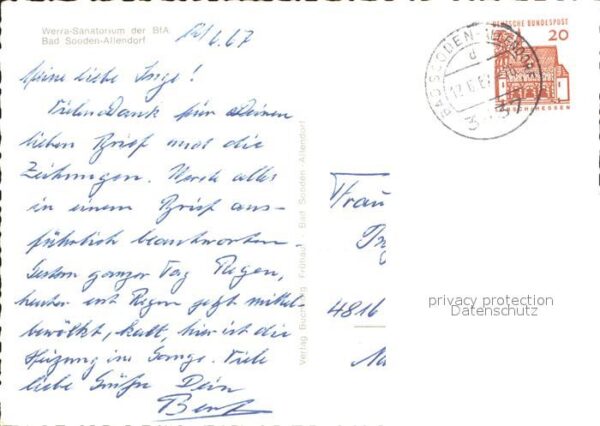 Werra-Sanatorium der BfA
Bad Sooden-Allendorf
12/6.67
Meine liebe Inge!
Vielen Dank für Deinen
lieben Brief und die
Zeitungen. Werde alles
in einem Brief aus-
führlich beantworten.
Gestern ganzer Tag Regen,
heute erst Regen jetzt mittel-
bewölkt, kalt, hier ist die
Heizung im Gange. Viele
liebe Grüße Dein
Verlag Buchhdlg. Frühauf - Bad Sooden-Allendorf
DEUTSCHE BUNDESPOST
20
BAD SOODEN-ALLENDORF
d
3437
Frau
4816
privacy protection
Datenschutz